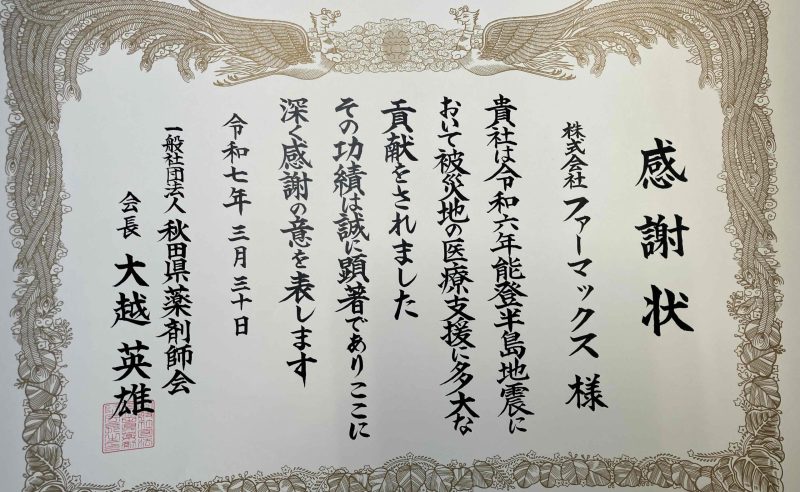 感謝状
株式会社 ファーマックス 様
貴社は令和六年能登半島地震に
おいて被災地の医療支援に多大な
貢献をされました
その功績は誠に顕著でありここに
深く感謝の意を表します
令和七年三月三十日
一般社団法人 秋田県薬剤師会
会長 大越英雄